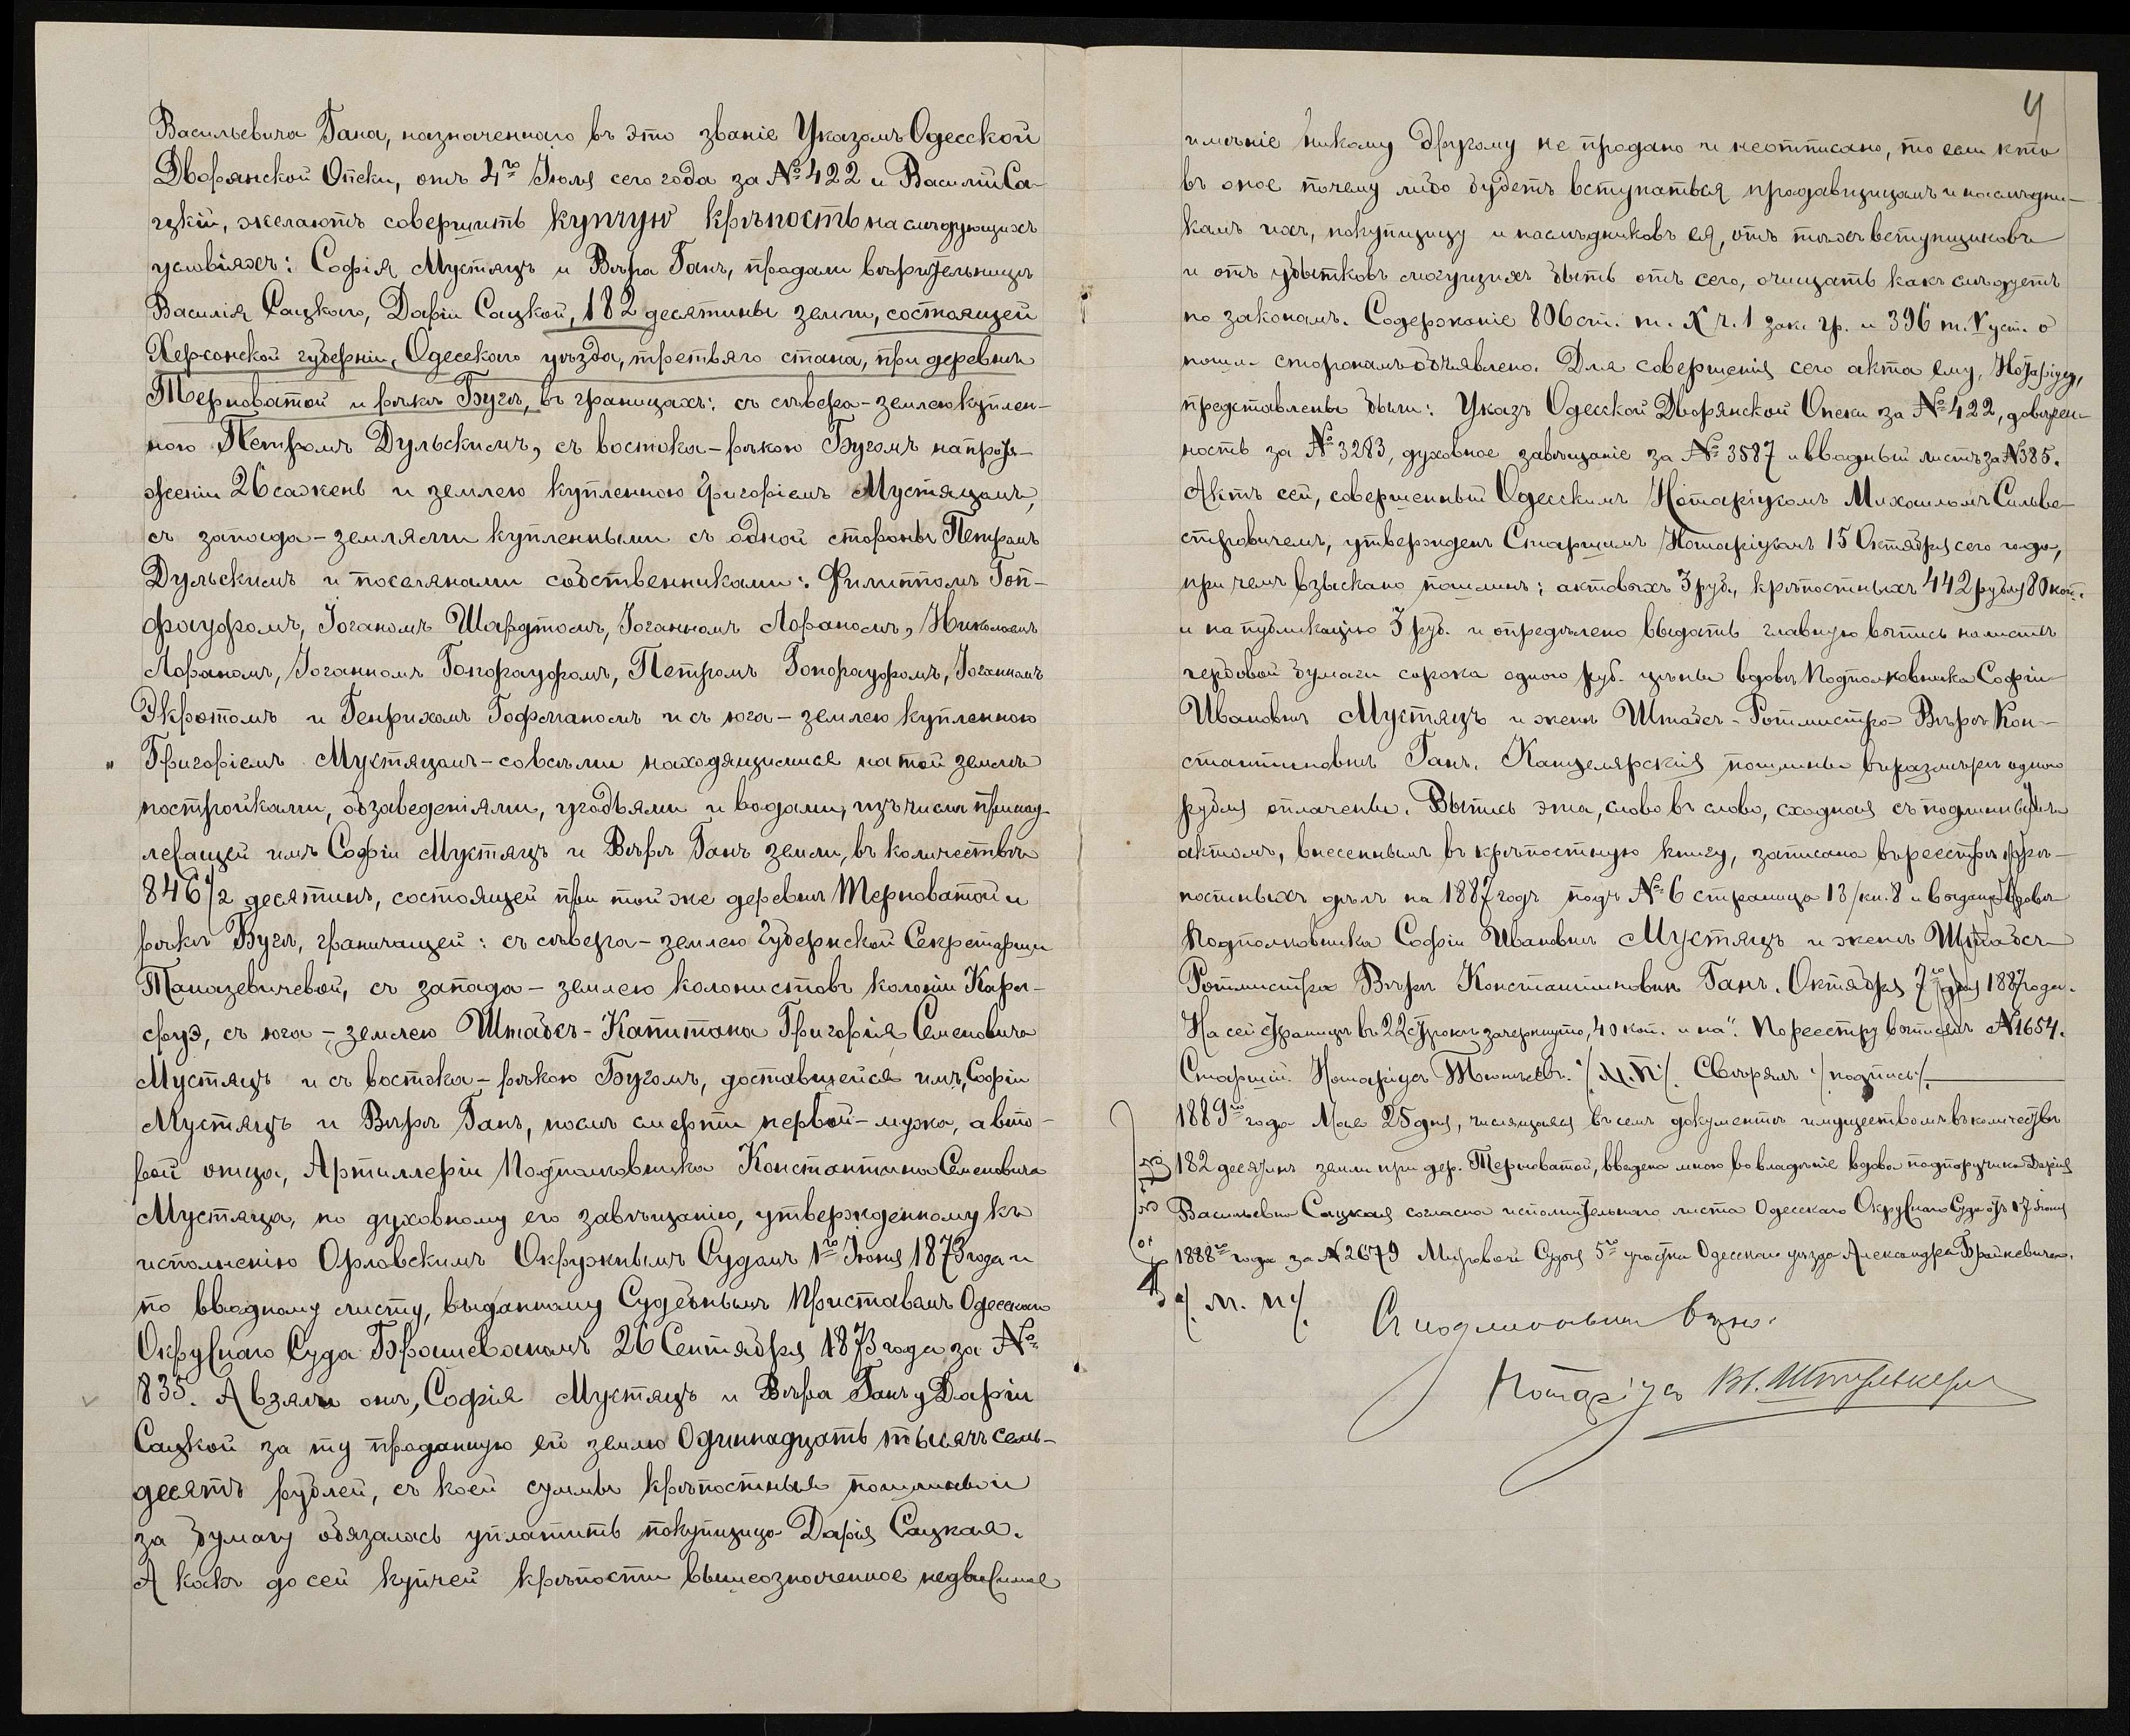 Васильевича Гана, назначеннаго въ это званіе Указомъ Одесской
Дворянской Опеки, отъ 4го Іюля сего года за № 422 и Василій Са-
цкій, желаютъ совершить купчую крѣпость на слѣдующихъ
условіяхъ: Софія Мустяцъ и Вѣра Ганъ, продали вѣрительницѣ
Василія Сацкаго, Даріи Сацкой, 182 десятины земли, состоящей
Херсонской губерніи, Одесскаго уѣзда, третьяго стана, при деревнѣ
Терноватой и рѣкѣ Бугѣ, въ границахъ: съ сѣвера - землею куплен-
ною Петромъ Дульскимъ, съ востока - рѣкою Бугомъ на протя-
женіи 26 сажень и землею купленною Григоріемъ Мустяцомъ,
съ запада - землями купленными съ одной стороны Петромъ
Дульскимъ и поселянами собственниками: Филиппомъ Гоп-
фауфомъ, Іоганомъ Шардтомъ, Іоганномъ Лораномъ, Николаемъ
Лораномъ, Іоганномъ Гопфауфомъ, Петромъ Гопфауфомъ, Іоганномъ
Экротомъ и Генрихомъ Гофманомъ и съ юга - землею купленною
Григоріемъ Мустяцомъ - со всѣми находящимися на той землѣ
постройками, обзаведеніями, угодьями и водами, изъ числа принад-
лежащей имъ Софіи Мустяцъ и Вѣрѣ Ганъ земли, въ количествѣ
846 1/2 десятинъ, состоящей при той же деревнѣ Терноватой и
рѣкѣ Бугѣ, граничащей: съ сѣвера - землею Губернской Секретарши
Таназевичевой, съ запада - землею колонистовъ колоніи Карлс-
руэ, съ юга - землею Штабсъ-Капитана Григорія Семеновича
Мустяцъ и съ востока - рѣкою Бугомъ, доставшейся имъ, Софіи
Мустяцъ и Вѣрѣ Ганъ, послѣ смерти первой - мужа, а вто-
рой отца, Артиллеріи Подполковника Константина Семеновича
Мустяца, по духовному его завѣщанію, утвержденному къ
исполненію Орловскимъ Окружнымъ Судомъ 1го Іюня 1873 года и
по вводному листу, выданному Судебнымъ Приставомъ Одесскаго
Окружнаго Суда 26 Сентября 1873 года за №
835. А взяли онѣ, Софія Мустяцъ и Вѣра Ганъ у Даріи
Сацкой за ту проданную ей землю Одиннадцать тысячъ семь-
десятъ рублей, съ коей суммы крѣпостныя пошлины и
за бумагу обязалась уплатить покупщица Дарія Сацкая.
А какъ до сей купчей крѣпости вышеозначенное недвижимое
4
имѣніе никому другому не продано и неотписано, то если кто
въ оное почему либо будетъ вступаться продавщицамъ и наслѣдни-
камъ ихъ, покупщицу и наслѣдниковъ ея, отъ тѣхъ вступщиковъ
и отъ убытковъ могущихъ быть отъ сего, очищать какъ слѣдуетъ
по законамъ. Содержаніе 806 ст. т. X ч. 1 зак. гр. и 396 т. V уст. о
пошл. сторонамъ объявлено. Для совершенія сего акта ему, Нотаріусу,
представлены были: Указъ Одесской Дворянской Опеки за № 422, довѣрен-
ность за № 3283, духовное завѣщаніе за № 3587 и вводный листъ за № 385.
Актъ сей, совершенный Одесскимъ Нотаріусомъ Михаиломъ Сильве-
стровичемъ, утвержденъ Старшимъ Нотаріусомъ 15 Октября сего года,
при чемъ взыскано пошлинъ: актовыхъ 3 руб., крѣпостныхъ 442 рубля 80 коп.
и на публикацію 3 руб. и опредѣлено выдать главную выпись на листѣ
гербовой бумаги сорока одного руб. цѣны вдовѣ Подполковника Софіи
Ивановнѣ Мустяцъ и женѣ Штабсъ-Ротмистра Вѣрѣ Кон-
стантиновнѣ Ганъ. Канцелярскія пошлины въ размѣрѣ одного
рубля оплачены. Выпись эта, слово въ слово, сходная съ подлиннымъ
актомъ, внесеннымъ въ крѣпостную книгу, записана въ реестръ крѣ-
постныхъ дѣлъ на 1887 годъ подъ № 6 страница 13/кн. 8 и выдана вдовѣ
Подполковника Софіи Ивановнѣ Мустяцъ и женѣ Штабсъ
Ротмистра Вѣрѣ Константиновнѣ Ганъ. Октября 7го дня 1887 года.
На сей страницѣ въ 22 строкѣ зачеркнуто, "40 коп. и на". По реестру выписей № 1654.
Старшій Нотаріусъ /М.П./. Свѣрялъ /подпись/.
1889го года Мая 25 дня, числящаяся въ семъ документѣ имуществомъ въ количествѣ
182 десятинъ земли при дер. Терноватой, введена мною во владѣніе вдова подпоручика Дарія
Васильевна Сацкая согласно исполнительнаго листа Одесскаго Окружнаго Суда отъ 17 Іюня
1888го года за № 2679 Мировой Судья 5го участка Одесскаго уѣзда Александръ
/М. П./ Съ подлиннымъ вѣрно.
Нотаріусъ